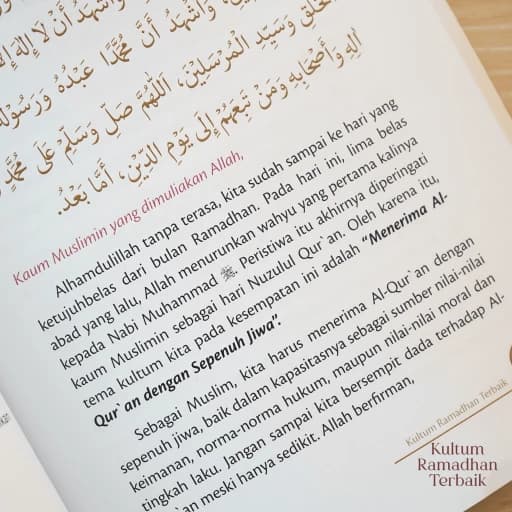 وَأَشْهَدُ أَنْ لَا إِلٰهَ إِلَّا
وَأَشْهَدُ أَنَّ مُحَمَّدًا عَبْدُهُ وَرَسُوْلُهُ
الْخَلْقِ وَسَيِّدِ الْمُرْسَلِيْنَ، اَللّٰهُمَّ صَلِّ وَسَلِّمْ عَلَى مُحَمَّدٍ
اٰلِهِ وَأَصْحَابِهِ وَمَنْ تَبِعَهُمْ إِلَى يَوْمِ الدِّيْنِ، أَمَّا بَعْدُ.
Kaum Muslimin yang dimuliakan Allah,
Alhamdulillah tanpa terasa, kita sudah sampai ke hari yang
ketujuhbelas dari bulan Ramadhan. Pada hari ini, lima belas
abad yang lalu, Allah menurunkan wahyu yang pertama kalinya
kepada Nabi Muhammad ﷺ. Peristiwa itu akhirnya diperingati
kaum Muslimin sebagai hari Nuzulul Qur`an. Oleh karena itu,
tema kultum kita pada kesempatan ini adalah “Menerima Al-
Qur`an dengan Sepenuh Jiwa”.
Sebagai Muslim, kita harus menerima Al-Qur`an dengan
sepenuh jiwa, baik dalam kapasitasnya sebagai sumber nilai-nilai
keimanan, norma-norma hukum, maupun nilai-nilai moral dan
tingkah laku. Jangan sampai kita bersempit dada terhadap Al-
`an meski hanya sedikit. Allah berfirman,
Kultum Ramadhan Terbaik
Kultum
Ramadhan
Terbaik